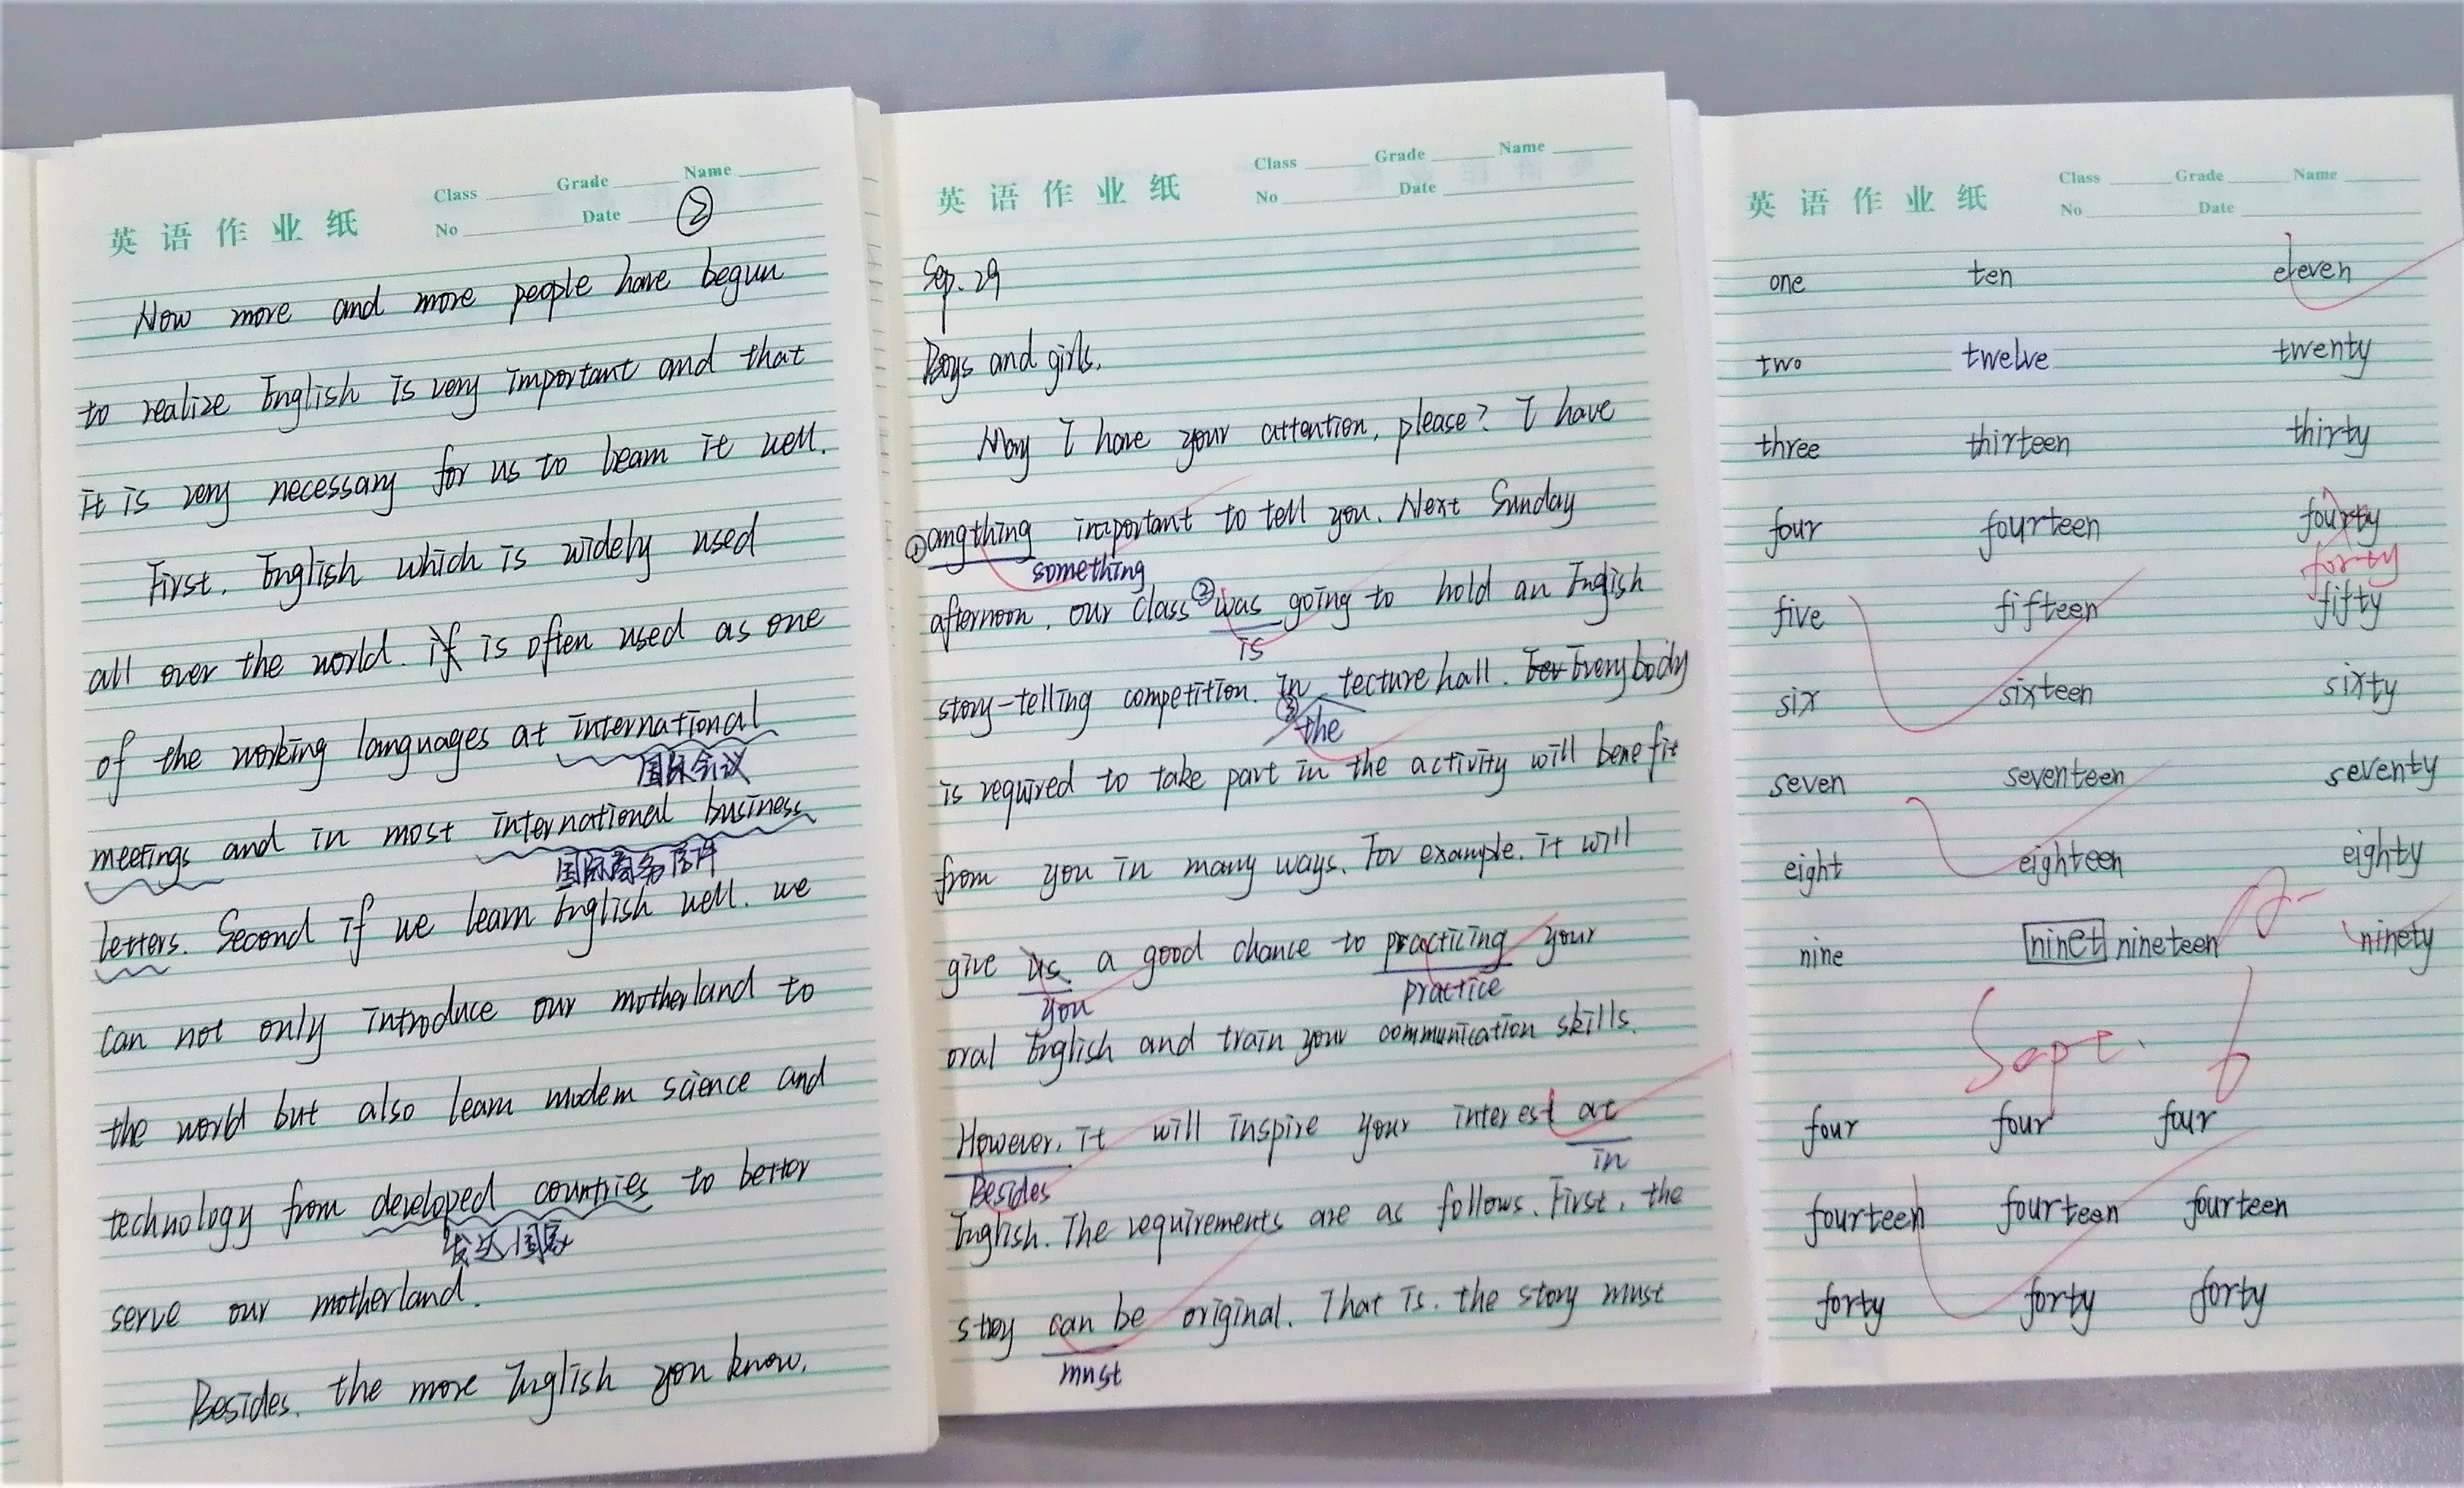 英语作业纸
Class Grade Name
No Date
②
Now more and more people have begun
to realize English is very important and that
it is very necessary for us to learn it well.
First, English which is widely used
all over the world. if is often used as one
of the working languages at international
国际会议
meetings and in most international business
国际商务信件
letters. Second if we learn English well, we
can not only introduce our motherland to
the world but also learn modern science and
technology from developed countries to better
发达国家
serve our motherland.
Besides, the more English you know,
英语作业纸
Class Grade Name
No Date
Sep. 29
Boys and girls,
May I have your attention, please? I have
①angthing important to tell you. Next Sunday
something
afternoon, our class ②was going to hold an English
is
story-telling competition. in tecture hall. Everybody
③ the
is required to take part in the activity will benefit
from you in many ways. For example, it will
give us a good chance to practicing your
you practice
oral English and train your communication skills.
However, it will inspire your interest at
Besides in
English. The requirements are as follows. First, the
story can be original. That is, the story must
must
英语作业纸
Class Grade Name
No Date
one ten eleven
two twelve twenty
three thirteen thirty
four fourteen fourty
forty
five fifteen fifty
six sixteen sixty
seven seventeen seventy
eight eighteen eighty
nine ninet nineteen ninety
Sept. 6
four four four
fourteen fourteen fourteen
forty forty forty